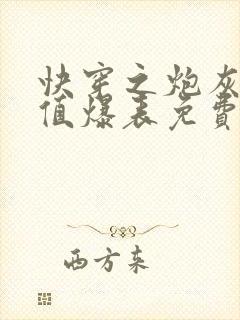 快穿之炮灰
值爆表免費
西方来